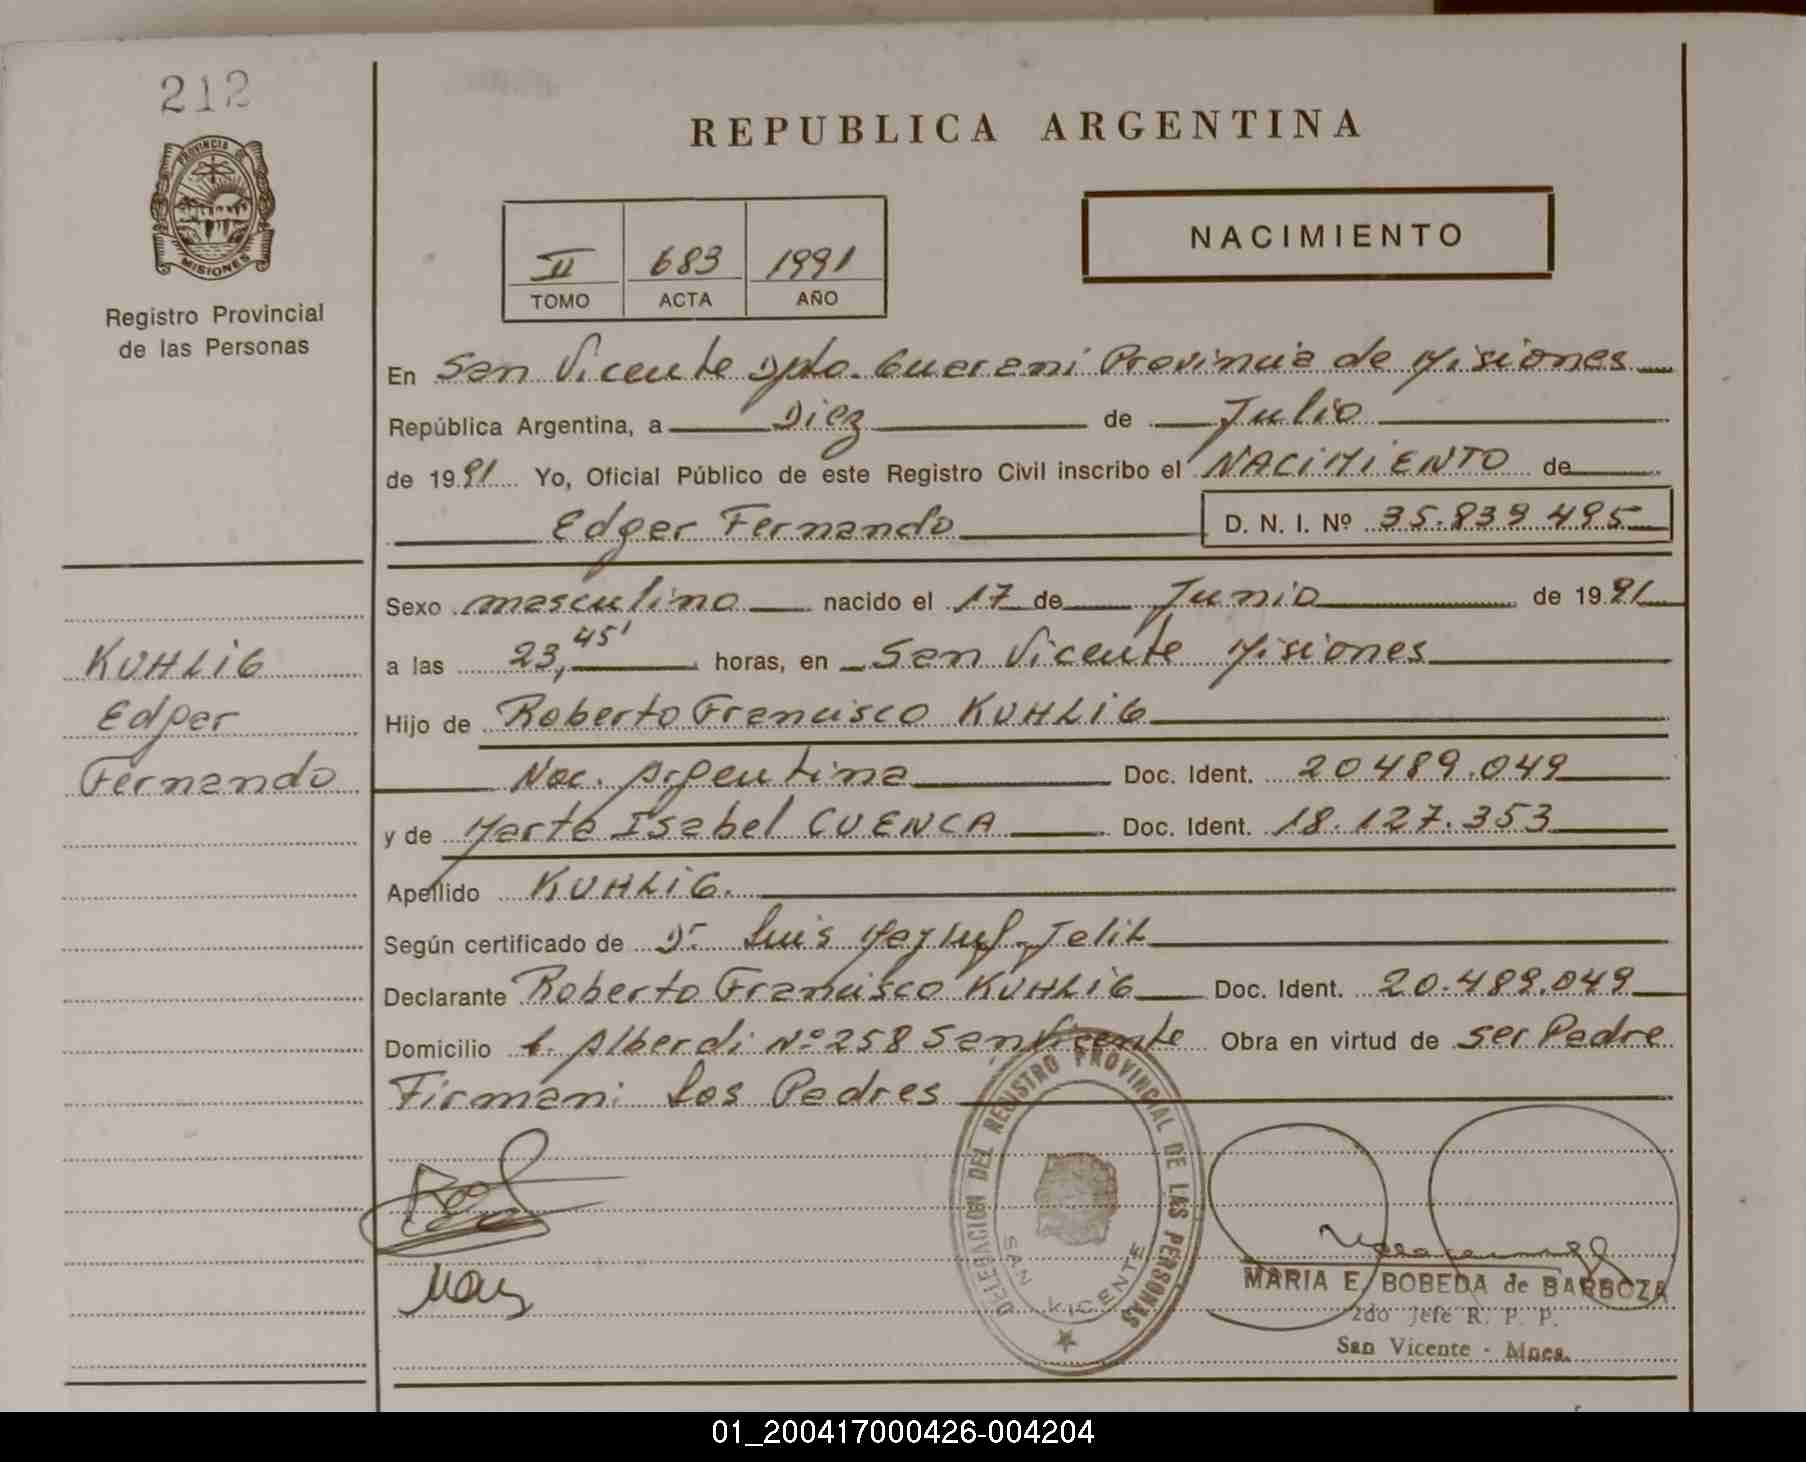 212
PROVINCIA DE
MISIONES
Registro Provincial
de las Personas
KUHLIG
Edgar
Fernando
REPUBLICA ARGENTINA
II 683 1991
TOMO ACTA AÑO
NACIMIENTO
En San Vicente Dpto. Guarani Provincia de Misiones
República Argentina, a Diez de Julio
de 1991 Yo, Oficial Público de este Registro Civil inscribo el NACIMIENTO de
Edgar Fernando D. N. I. Nº 35.839 495
Sexo masculino nacido el 17 de Junio de 1991
a las 23,45' horas, en San Vicente Misiones
Hijo de Roberto Francisco KUHLIG
Nac. Argentina Doc. Ident. 20489.049
y de Marta Isabel CUENCA Doc. Ident. 18.127.353
Apellido KUHLIG.
Según certificado de Dr. Luis
Declarante Roberto Francisco KUHLIG Doc. Ident. 20.489.049
Domicilio Alberdi Nº 258 San Vicente Obra en virtud de ser Padre
Firman: Los Padres
DELEGACION DEL REGISTRO PROVINCIAL DE LAS PERSONAS
SAN VICENTE
MARIA E. BOBEDA de BARBOZA
2do Jefe R. P. P.
San Vicente - Mnes.
01_200417000426-004204